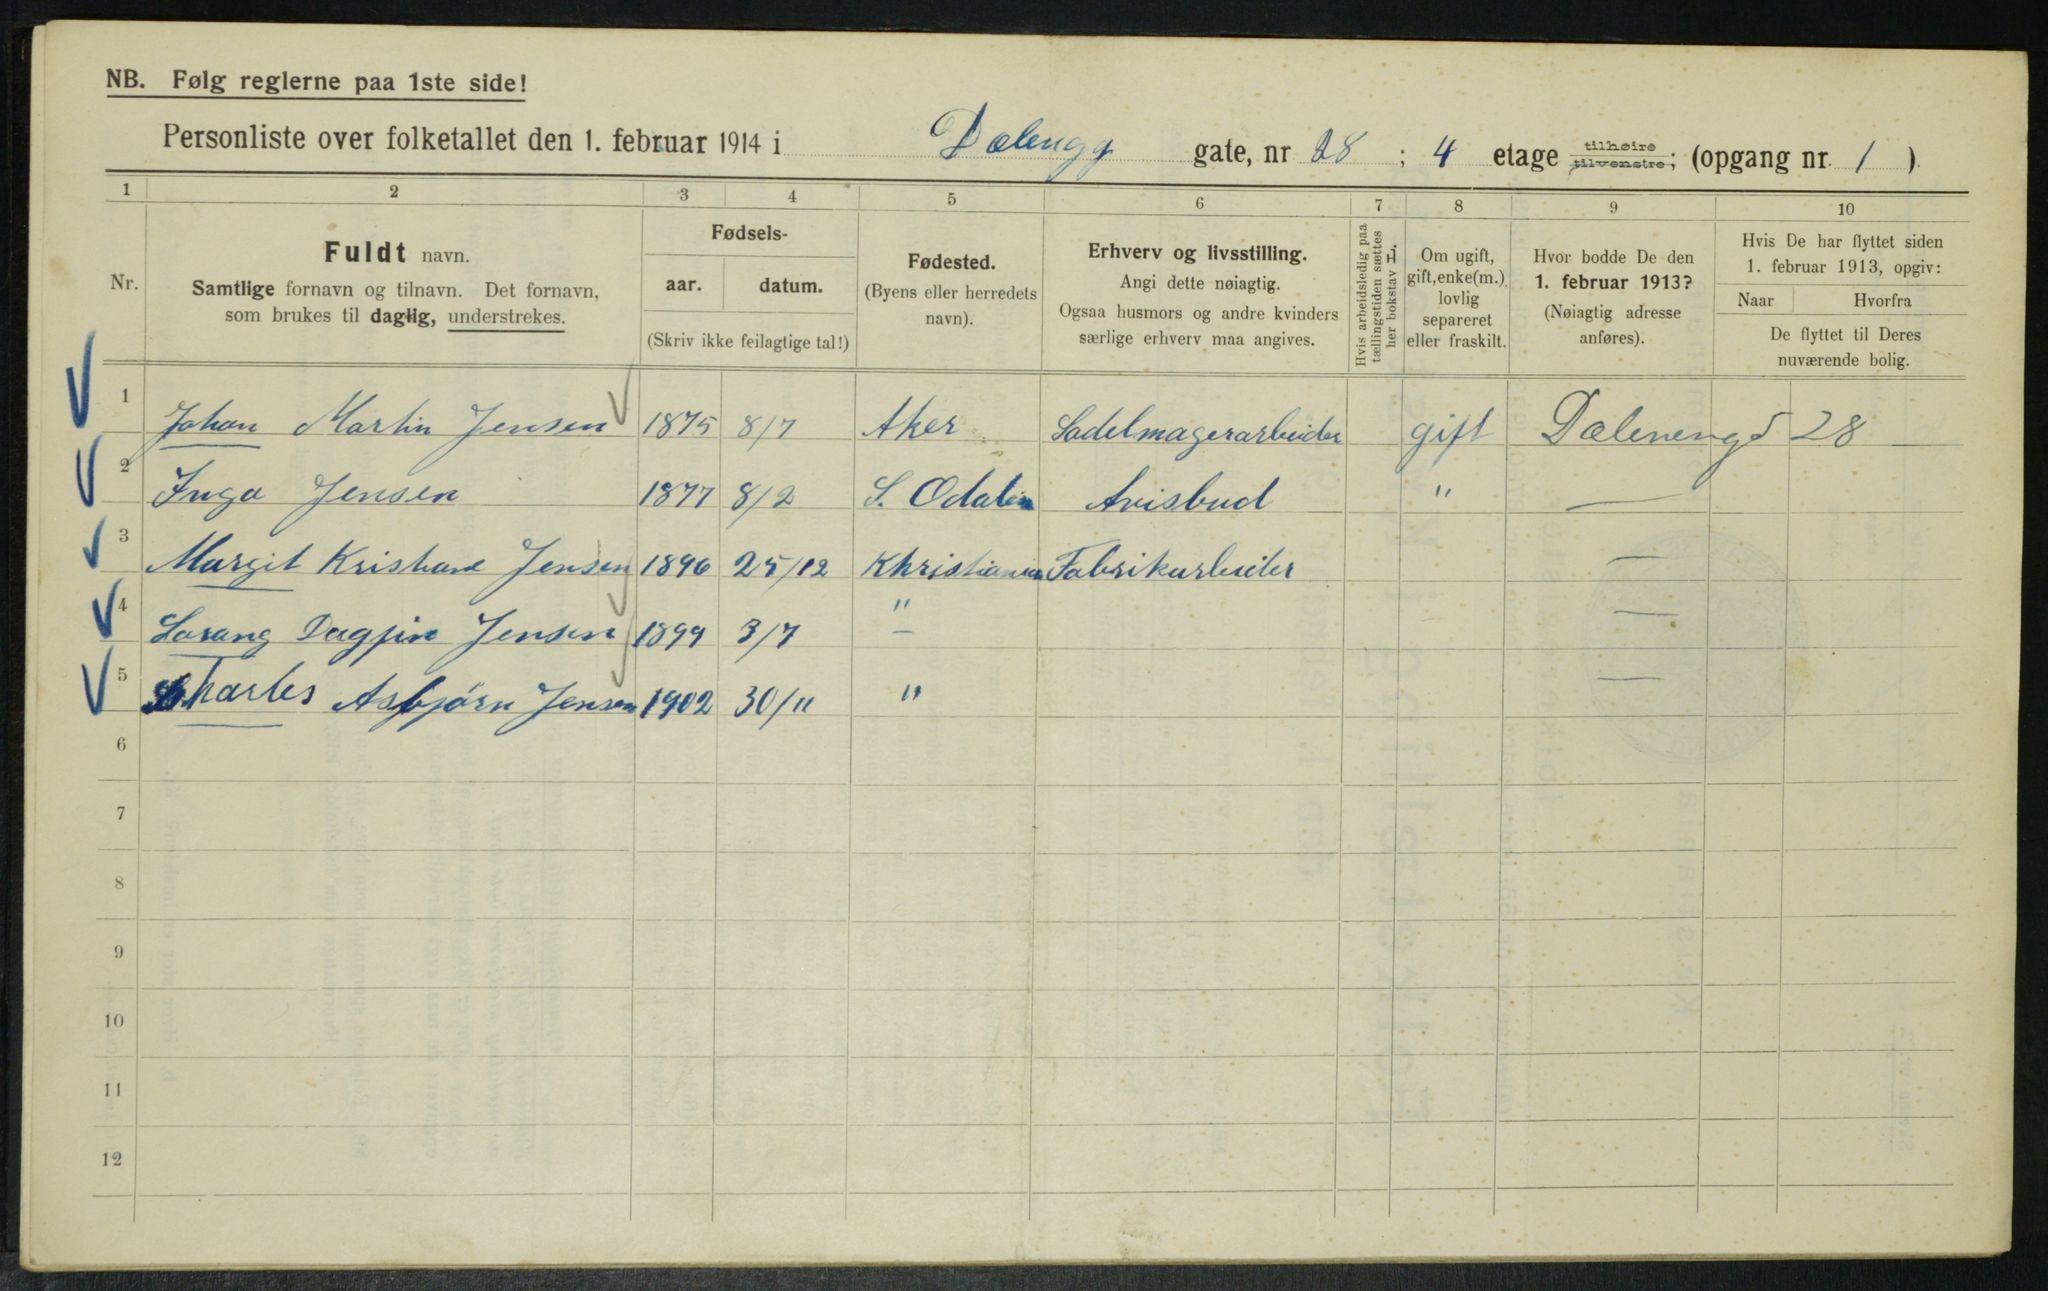 NB. Følg reglerne paa 1ste side!
Personliste over folketallet den 1. februar 1914 i Dælengg gate, nr 28 ; 4 etage tilhøire tilvenstre; (opgang nr. 1 ).
1 2 3 4 5 6 7 8 9 10
Nr.
Fuldt navn.
Samtlige fornavn og tilnavn. Det fornavn,
som brukes til daglig, understrekes.
Fødsels-
aar. datum.
(Skriv ikke feilagtige tal!)
Fødested.
(Byens eller herredets
navn).
Erhverv og livsstilling.
Angi dette nøiagtig.
Ogsaa husmors og andre kvinders
særlige erhverv maa angives.
Hvis arbeidsledig paa
tællingstiden sættes
her bokstav L.
Om ugift,
gift, enke(m.)
lovlig
separeret
eller fraskilt.
Hvor bodde De den
1. februar 1913?
(Nøiagtig adresse
anføres).
Hvis De har flyttet siden
1. februar 1913, opgiv:
Naar Hvorfra
De flyttet til Deres
nuværende bolig.
1 Johan Martin Jensen 1875 8/7 Aker Sadelmagerarbeider gift Dælenengd 28
2 Inga Jensen 1877 8/2 S. Odalen Avisbud " —
3 Margit Kristiane Jensen 1896 25/12 Khristiania Fabrikarbeider —
4 Dagfin Jensen 1899 3/7 " — —
5 Tharles Asbjørn Jensen 1902 30/11 " —
6
7
8
9
10
11
12